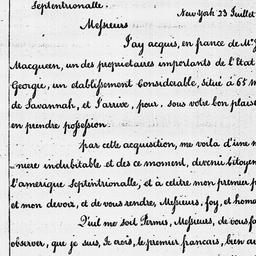 Septentrionalle.
New York 23 Juillet
Messieurs
J'ay acquis, en france de Mr. J
Macqueen, un des propriétaires importants de l'Etat
Georgie, un etablissement Considerable, situé à 65 m
de Savannah, et J'arrive, pour. sous votre bon plaisi
en prendre possession.
par cette acquisition, me voila d'une m
niere indubitable et des ce moment, devenir Citoyen
L'amerique Septentrionnalle, et à cetitre mon premier p
et mon devoir, et de vous rendre, Messieurs, foy, et homa
Qu'il me soit Permis, Messieurs, de vous fa
observer, que je suis, Je crois, le premier francais, bien au